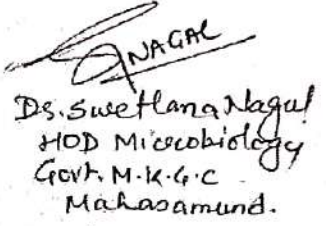 NAGAL
Ds. Swetlana Nagal
HOD Microbiology
Govt. M.K.G.C
Mahasamund.